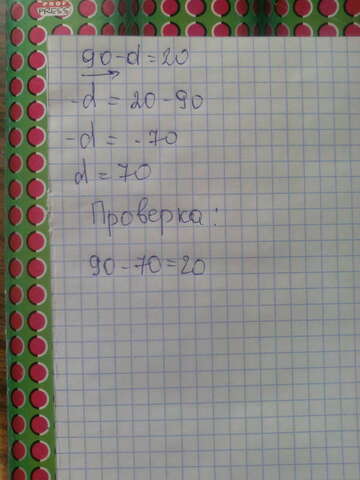 PROF
PRESS
90-d=20
-d = 20-90
-d = -70
d = 70
Проверка:
90-70=20